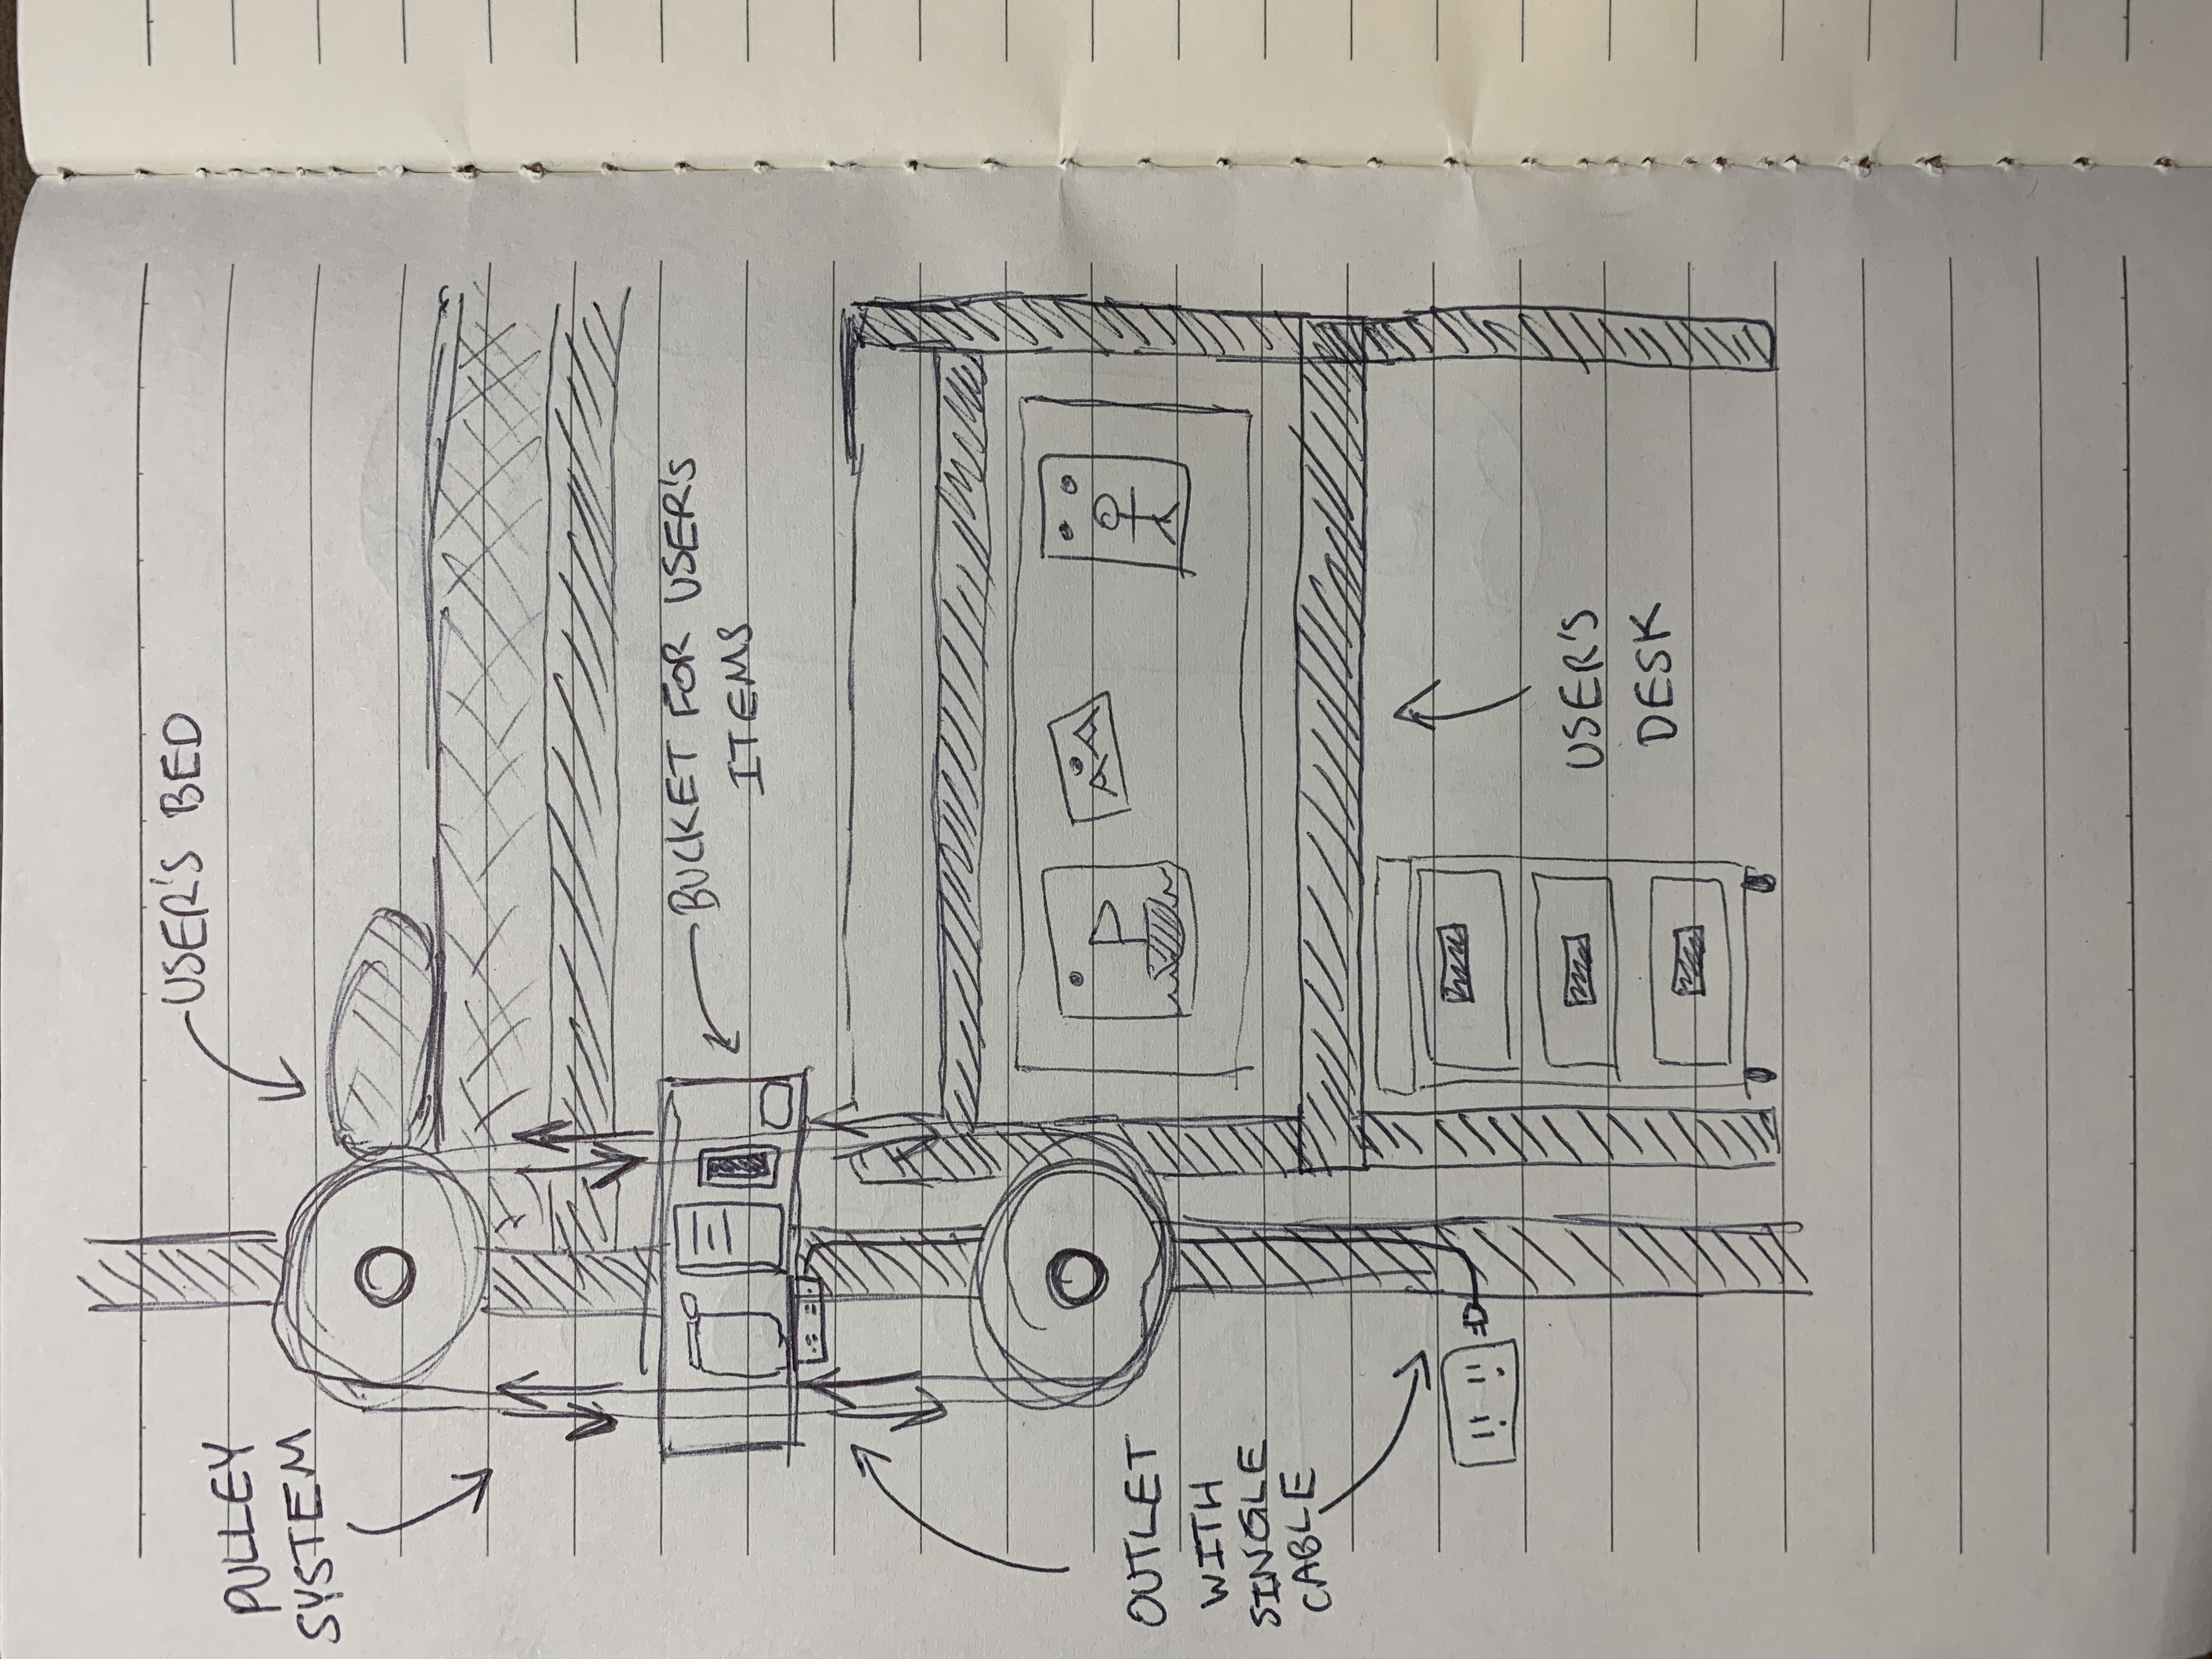 USER'S BED
PULLEY
SYSTEM
BUCKET FOR USER'S
ITEMS
OUTLET
WITH
SINGLE
CABLE
USER'S
DESK